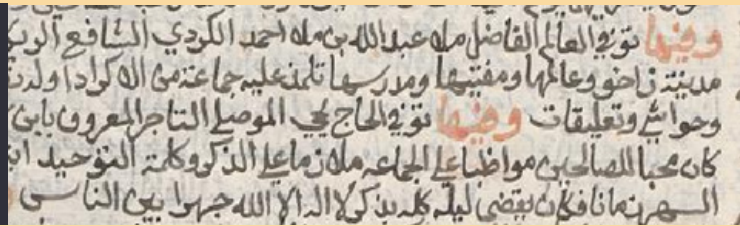 وفيها توفي العالم الفاضل ملا عبدالله بن ملا احمد الكردي الشافعي
مدينة زاخو وعالمها ومفتيها ومدرسها تلمذ عليه جماعة من الاكراد اولد
وحواشي وتعليقات وفيها توفي الحاج يحيى الموصلي التاجر المعروف بابن
كان محبا للصالحين مواظبا على الجماعه ملازما على الذكر وكلمة التوحيد
السهر زمانا فكان يقضي ليله كله بذكر لا اله الا الله جهرا بين الناس